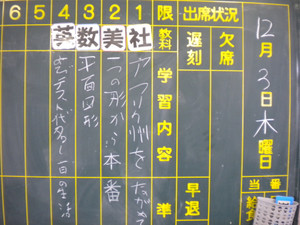 12月3日木曜日
当番
給食
出席状況
欠席
遅刻
早退
限 1 2 3 4 5 6
教科 社 美 数 英
学習内容
準
アフリカ州をながめて
一つの形から本番
平面図形
一日の生活